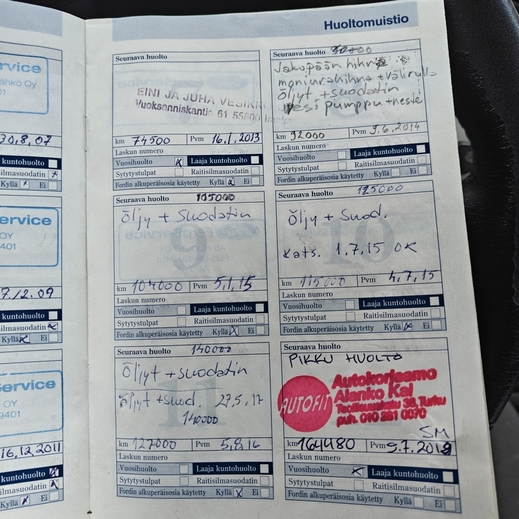 Huoltomuistio
ervice
30.8.07
kuntohuolto
ilmasuodatin
Kyllä Ei
ervice
OY
401
kuntohuolto
ilmasuodatin
Kyllä Ei
ervice
OY
0401
16.12.2011
kuntohuolto
ilmasuodatin
Kyllä Ei
Seuraava huolto
EINI JA JUHA
Vuoksenniskantie 61 55800
km 74500 Pvm 16.1.2013
Laskun numero
Vuosihuolto Laaja kuntohuolto
Sytytystulpat Raitisilmasuodatin
Fordin alkuperäisosia käytetty Kyllä Ei
Seuraava huolto
Jakopään hihna
moniurahihna + välirulla
öljyt + suodatin
Vesi pumppu + neste
km 92000 Pvm 9.6.2014
Laskun numero
Vuosihuolto Laaja kuntohuolto
Sytytystulpat Raitisilmasuodatin
Fordin alkuperäisosia käytetty Kyllä Ei
Seuraava huolto
öljy + suodatin
km 104000 Pvm 5.1.15
Laskun numero
Vuosihuolto Laaja kuntohuolto
Sytytystulpat Raitisilmasuodatin
Fordin alkuperäisosia käytetty Kyllä Ei
Seuraava huolto 125000
öljy + suod.
Kats. 1.7.15 OK
km 115000 Pvm 4.7.15
Laskun numero
Vuosihuolto Laaja kuntohuolto
Sytytystulpat Raitisilmasuodatin
Fordin alkuperäisosia käytetty Kyllä Ei
Seuraava huolto 140000
öljyt + suodatin
öljyt + suod. 27.5.17
140000
km 127000 Pvm 5.8.16
Laskun numero
Vuosihuolto Laaja kuntohuolto
Sytytystulpat Raitisilmasuodatin
Fordin alkuperäisosia käytetty Kyllä Ei
Seuraava huolto
PIKKU HUOLTO
AUTOFIT
Autokorjaamo
Alanko Kai
38, Turku
puh. 010 281 0070
SM
km 164480 Pvm 5.7.2019
Laskun numero
Vuosihuolto Laaja kuntohuolto
Sytytystulpat Raitisilmasuodatin
Fordin alkuperäisosia käytetty Kyllä Ei